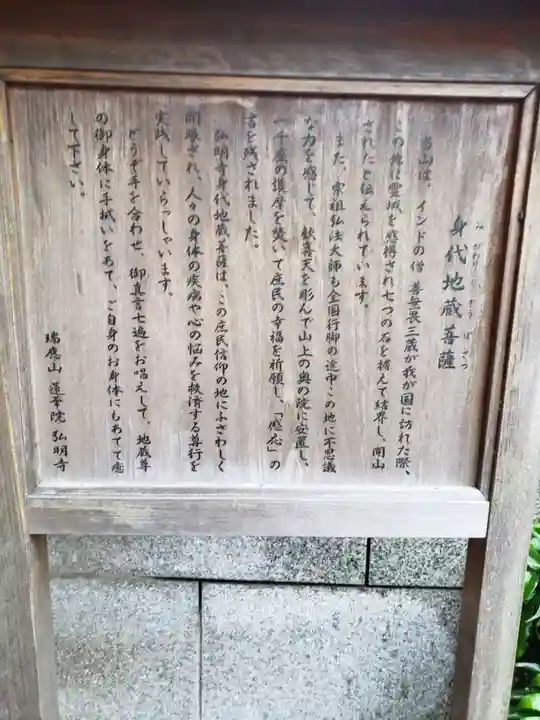 身代地蔵菩薩
み がわり じ ぞう ぼ さつ
当山は、インドの僧 善無畏三蔵が我が国に訪れた際、
この地に霊域を感得され七つの石を据えて結界し、開山
されたと伝えられています。
また、宗祖弘法大師も全国行脚の途中この地に不思議
な力を感じて、歓喜天を彫んで山上の奥の院に安置し、
一千座の護摩を焚いて庶民の幸福を祈願し、「應応」の
言を残されました。
弘明寺身代地蔵菩薩は、この庶民信仰の地にふさわしく
開眼され、人々の身体の疾病や心の悩みを救済する尊行を
実践していらっしゃいます。
どうぞ手を合わせ、御真言七遍をお唱えして、地蔵尊
の御身体に手拭いをあて、ご自身のお身体にもあてて癒
して下さい。
瑞應山 蓮華院 弘明寺